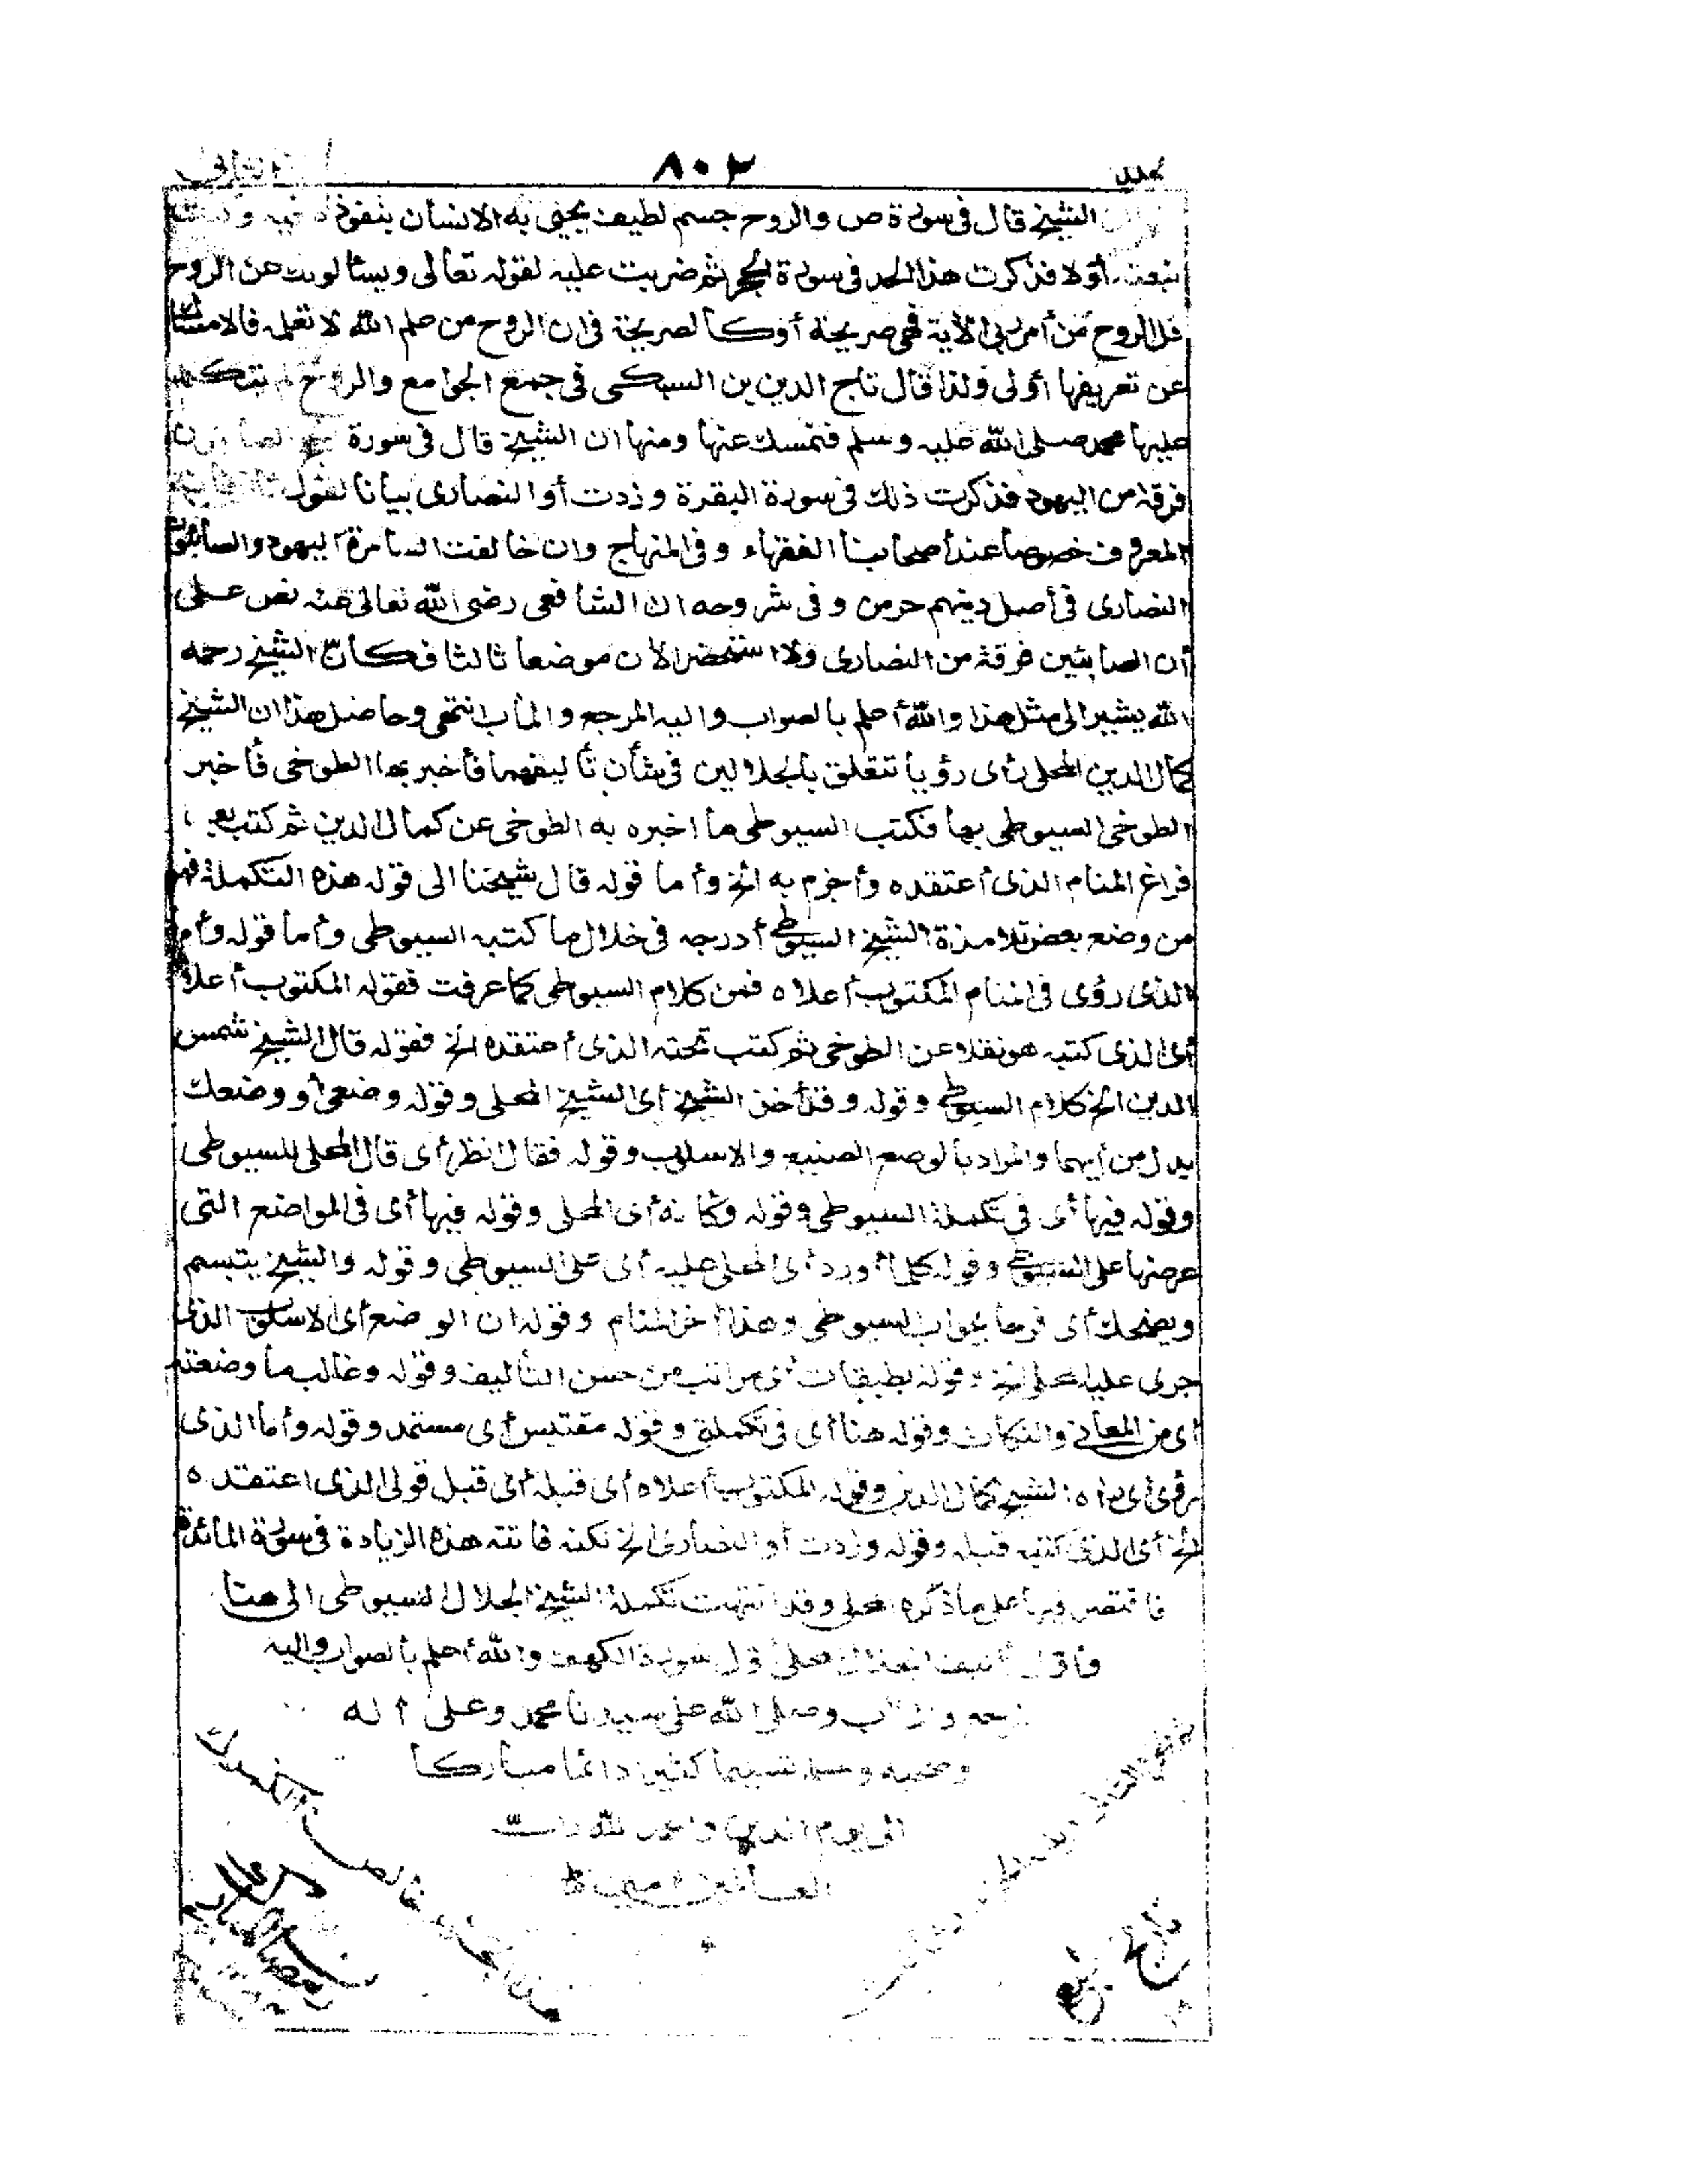 مجلد ٨٠٢ الثاني
الشيخ قال في سورة ص والروح جسم لطيف يحيى به الانسان بنفوذه فيه وكنت
تبعته أولا فذكرت هذا الحد في سورة الحجر ثم ضربت عليه لقوله تعالى ويسئالونك عن الروح
قل الروح من أمر ربي الآية فهي صريحة أو كالصريحة في ان الروح من علم الله لا نعلمه فالامساك
عن تعريفها أولى ولذا قال تاج الدين بن السبكى في جمع الجوامع والروح لم يتكلم
عليها محمد صلى الله عليه وسلم فنمسك عنها ومنها ان الشيخ قال في سورة الحج الصابئون
فرقة من اليهود فذكرت ذلك في سورة البقرة وزدت أو النصارى بيانا لقول
المعروف خصوصا عند أصحابنا الفقهاء وفي المنهاج وان خالفت السامرة اليهود والصابئون
النصارى في أصل دينهم حرمن وفي شروحه ان الشافعى رضى الله تعالى عنه نص على
أن الصابئين فرقة من النصارى ولا استحضر الآن موضعا ثالثا فكأن الشيخ رحمه
الله يشير الى مثل هذا والله أعلم بالصواب واليه المرجع والمآب انتهى وحاصل هذا ان الشيخ
كمال الدين المحلى رأى رؤيا تتعلق بالجلالين في شأن تأليفهما فأخبر بها الطوخى فأخبر
الطوخى السيوطى بها فكتب السيوطى ما اخبره به الطوخى عن كمال الدين ثم كتب بعد
فراغ المنام الذى أعتقده وأجزم به الخ وأما قوله قال شيخنا الى قوله هذه التكملة فهو
من وضع بعض تلامذة الشيخ السيوطى أدرجه في خلال ما كتبه السيوطى وأما قوله وأما
الذى رؤى في المنام المكتوب أعلاه فمن كلام السيوطى كما عرفت فقوله المكتوب أعلاه
أى الذى كتبه هو نقلا عن الطوخى ثم كتب تحته الذى أعتقده الخ فقوله قال الشيخ شمس
الدين الخ كلام السيوطى وقوله وقد أخذ الشيخ أى الشيخ المحلى وقوله وضعى أو وضعك
بدل من أيهما والمراد بالوضع الصنيع والاسلوب وقوله فقال انظر أى قال المحلى للسيوطى
وقوله فيها أى في تكملة السيوطى وقوله وكأنه أى المحلى وقوله فيها أى في المواضع التى
عرضها على السيوطى وقوله كلما أورد أى المحلى عليه أى على السيوطى وقوله والشيخ يتبسم
ويضحك أى فرحا بجواب السيوطى وهذا آخر المنام وقوله ان الوضع أى الاسلوب الذى
جرى عليه المحلى الخ وقوله بطبقات أى مراتب من حسن التأليف وقوله وغالب ما وضعته
أى من المعاني والنكات وقوله هنا أى في تكملة وقوله مقتبس أى مستمد وقوله وأما الذى
رؤى أى رآه الشيخ كمال الدين وقوله المكتوب أعلاه أى قبله أى قبل قولى الذى اعتقده
الخ أى الذى كتبه قبله وقوله وزدت أو النصارى الخ لكنه فاتته هذه الزيادة في سورة المائدة
فاقتصر فيها على ما ذكره المحلى وقد انتهت تكملة الشيخ الجلال السيوطى الى هنا
وأول تأليف الجلال المحلى أول سورة الكهف والله أعلم بالصواب واليه
المرجع والمآب وصلى الله على سيدنا محمد وعلى آله
وصحبه وسلم تسليما كثيرا دائما مباركا
الى يوم الدين والحمد لله رب
العالمين آمين